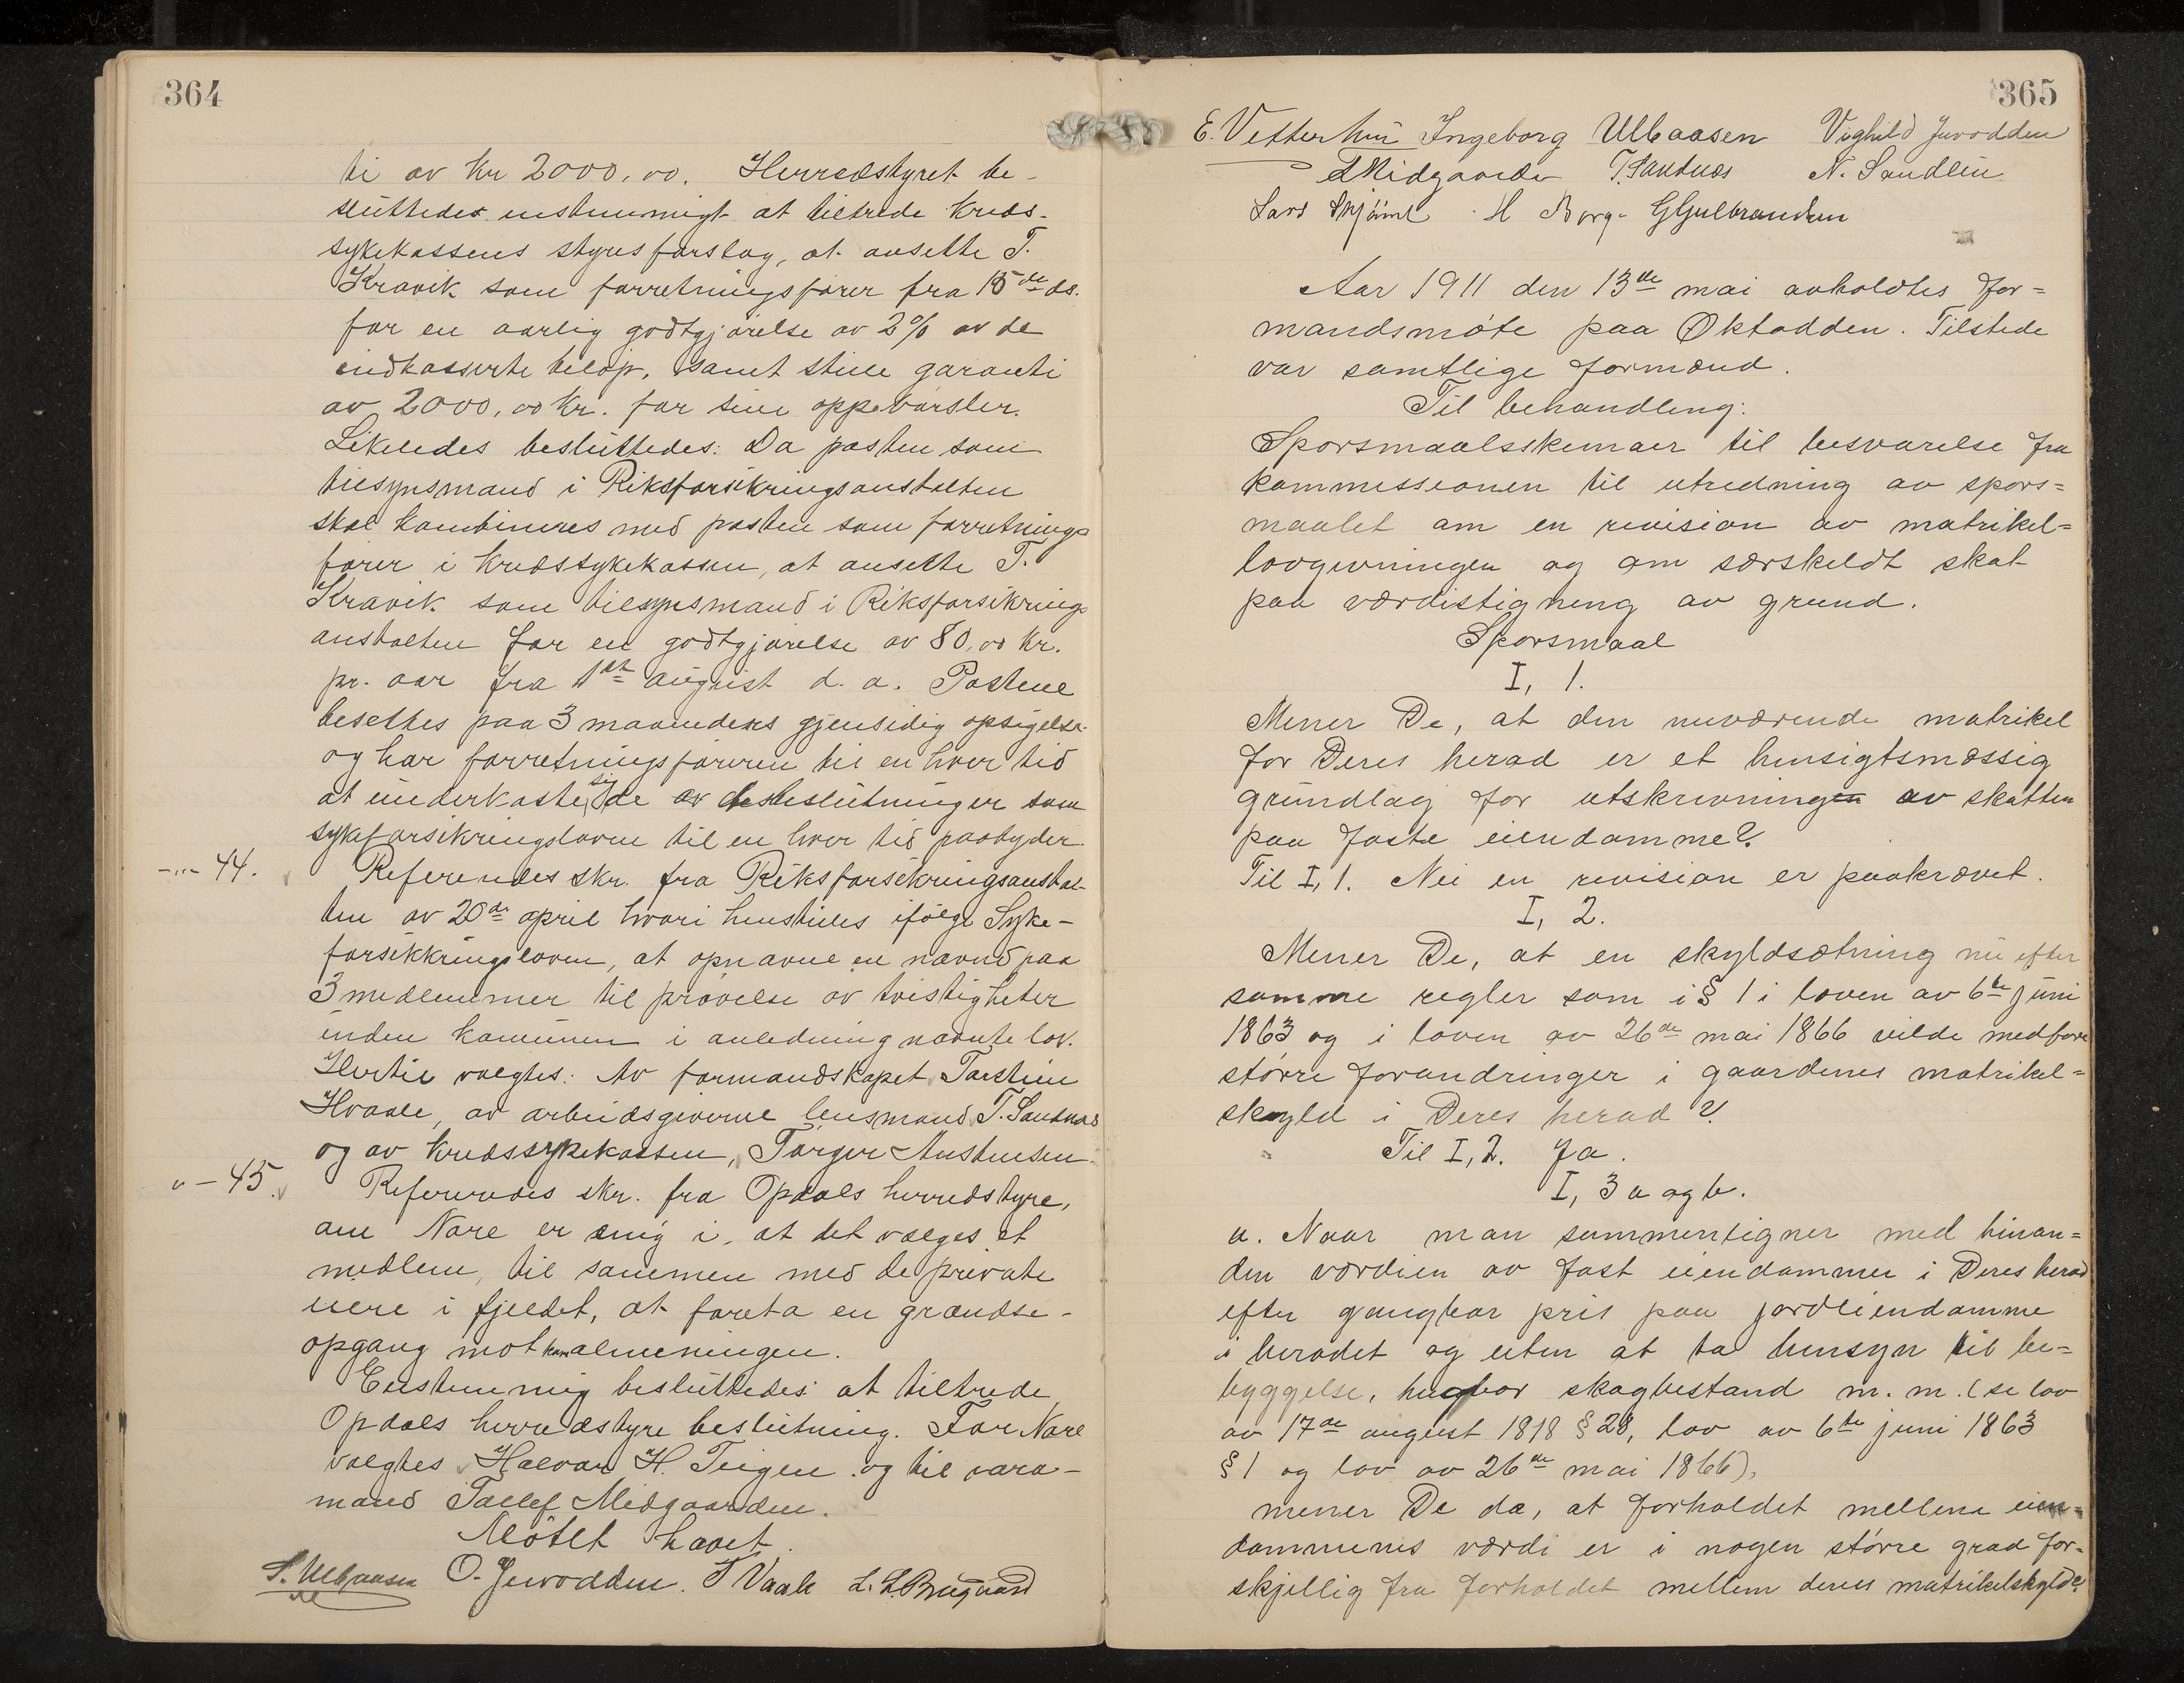 364
ti av Kr 2000,00. Herredstyret be-
sluttedes enstemmigt at tiltræde Kreds-
sykekassens styres forslag, at ansette T.
Kravik som forretningsfører fra 15de ds.
for en aarlig godtgjørelse av 2% av de
indkasserte beløp, samt stille garanti
av 2000,00 Kr. for sine oppebørsler.
Likeledes besluttedes: Da posten som
tilsynsmand i Riksforsikringsanstalten
skal kombineres med posten som forretnings
fører i kredssykekassen, at ansette T.
Kravik som tilsynsmand i Riksforsikrings
anstalten for en godtgjørelse av 80,00 Kr.
pr. aar fra 1ste august d. a. Postene
besettes paa 3 maaneders gjensidig opsigelse
og har forretningsføreren til en hver tid
at underkaste sig de beslutninger som
sykeforsikringsloven til en hver tid paabyder
-"- 44. Referertes skr. fra Riksforsikringsanstal-
ten av 20de april hvori henstilles ifølge Syke-
forsikkringsloven, at opnævne en nævnd paa
3 medlemmer til prøvelse av tvistigheter
inden kommunen i anledning nævnte lov.
Hertil valgtes: Av formandskapet Torstein
Hvaale, av arbeidsgiverne lensmand T. Sandnæs
og av Kredssykekassen, Torger Austensen.
" - 45. Refereredes skr. fra Opdals herredstyre,
om Nore er enig i, at det vælges et
medlem, til sammen med de private
eiere i fjeldet, at foreta en grændse-
opgang mot kom almeningen.
Enstemmig besluttedes at tiltrede
Opdals herredstyre beslutning. For Nore
valgtes Halvor H. Teigen og til vara-
mand Tollef Midgaarden.
Møtet hævet.
S. Ulbaasen O. Juvodden. T Vaale L. L. Brugaard
365
E. Vetterhus Ingeborg Ulbaasen Vighild Juvodden
T Midgaarden T. Sandnæs N. Sandlin
Lars Skjønl H Borg- G Gulbrandsen
Aar 1911 den 13de mai avholdtes for=
mandsmøte paa Oktodden. Tilstede
var samtlige formænd.
Til behandling:
Sporsmaalsskemaer til besvarelse fra
kommissionen til utredning av spors=
maalet om en revision av matrikel=
lovgivningen og om særskildt skat
paa værdistigning av grund.
Sporsmaal
I, 1.
Mener De, at den nuværende matrikel
for Deres herad er et hensigtsmæssig
grundlag for utskrivningen av skatten
paa faste eiendomme?
Til I, 1. Nei en revision er paakrævet.
I, 2.
Mener De, at en skyldsætning nu efter
samme regler som i § 1 i loven av 6te juni
1863 og i loven av 26de mai 1866 vilde medføre
større forandringer i gaardenes matrikel=
skyld i Deres herad?
Til I, 2. Ja.
I, 3 a og b.
a. Naar man sammenligner med hinan=
den værdien av fast eiendommer i Deres herad
efter gangbar pris paa jordeiendomme
i heradet og uten at ta hensyn til be=
byggelse, hugbar skogbestand m. m. (se lov
av 17de august 1818 § 28, lov av 6te juni 1863
§ 1 og lov av 26de mai 1866),
mener De da, at forholdet mellem eien=
dommenes værdi er i nogen større grad for=
skjellig fra forholdet mellem deres matrikelskyld?